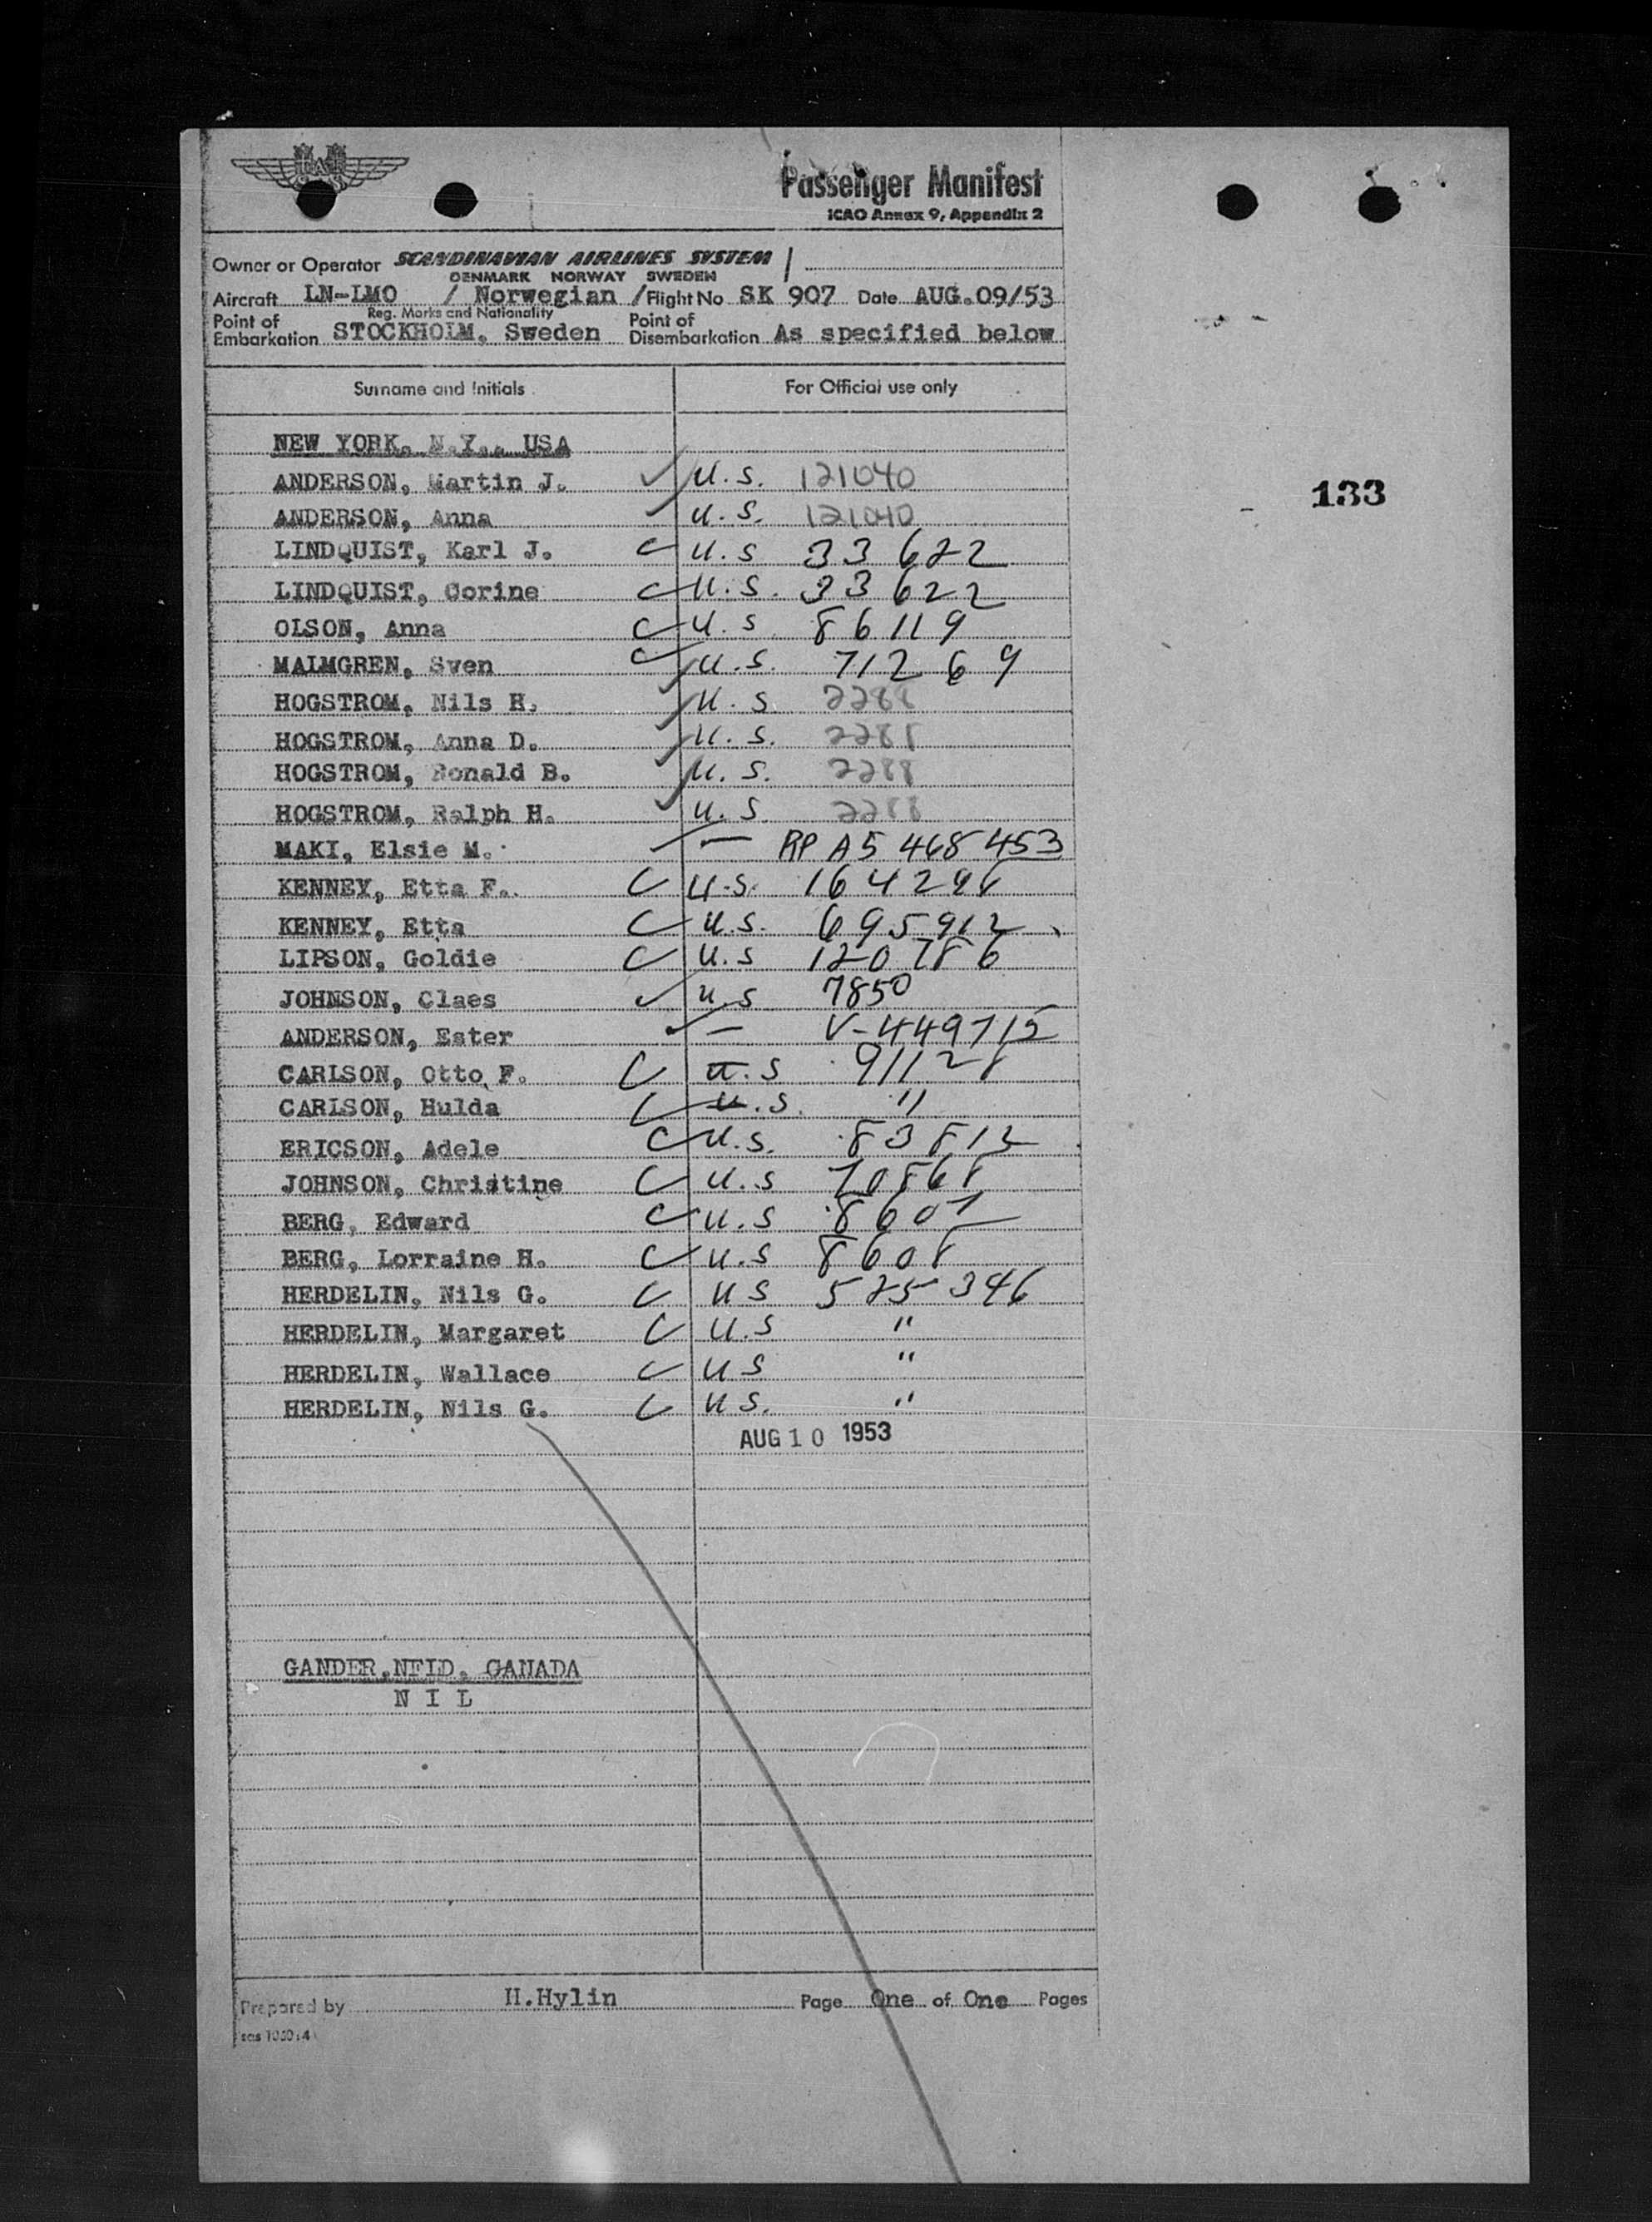 Passenger Manifest
ICAO Annex 9, Appendix 2
Owner or Operator SCANDINAVIAN AIRLINES SYSTEM
DENMARK NORWAY SWEDEN
Aircraft LN-LMO / Norwegian / Flight No SK 907 Date AUG.09/53
Reg. Marks and Nationality
Point of Embarkation STOCKHOLM, Sweden Point of Disembarkation As specified below
Surname and Initials For Official use only
NEW YORK, N.Y., USA
ANDERSON, Martin J. U.S. 121040
133
ANDERSON, Anna U.S. 121040
LINDQUIST, Karl J. U.S 33622
LINDQUIST, Corine U.S. 33622
OLSON, Anna U.S. 86119
MALMGREN, Sven U.S. 71269
HOGSTROM, Nils H. U.S 2288
HOGSTROM, Anna D. U.S. 2288
HOGSTROM, Ronald B. U.S. 2288
HOGSTROM, Ralph H. U.S. 2288
MAKI, Elsie M. — RP A5 468 453
KENNEY, Etta F. U.S. 164298
KENNEY, Etta U.S. 695912
LIPSON, Goldie U.S 120786
JOHNSON, Claes U.S 7850
ANDERSON, Ester — V-449715
CARLSON, Otto F. U.S 91128
CARLSON, Hulda U.S. "
ERICSON, Adele U.S. 83812
JOHNSON, Christine U.S 70868
BERG, Edward U.S 8607
BERG, Lorraine H. U.S 8608
HERDELIN, Nils G. US 525346
HERDELIN, Margaret U.S "
HERDELIN, Wallace US "
HERDELIN, Nils G. US. "
AUG 10 1953
GANDER, NFLD. CANADA
N I L
Prepared by H.Hylin Page One of One Pages